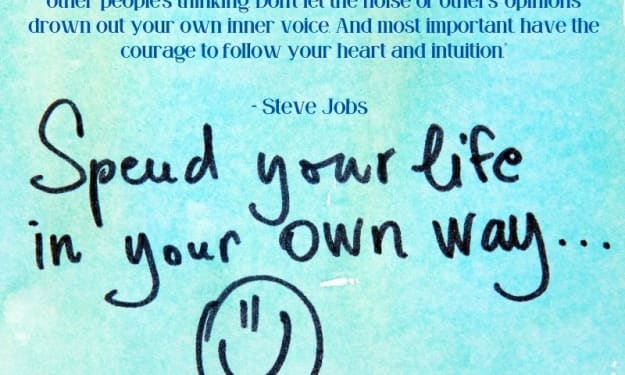 other people's thinking. Don't let the noise of others' opinions
drown out your own inner voice. And most important have the
courage to follow your heart and intuition."
- Steve Jobs
Spend your life
in your own way...